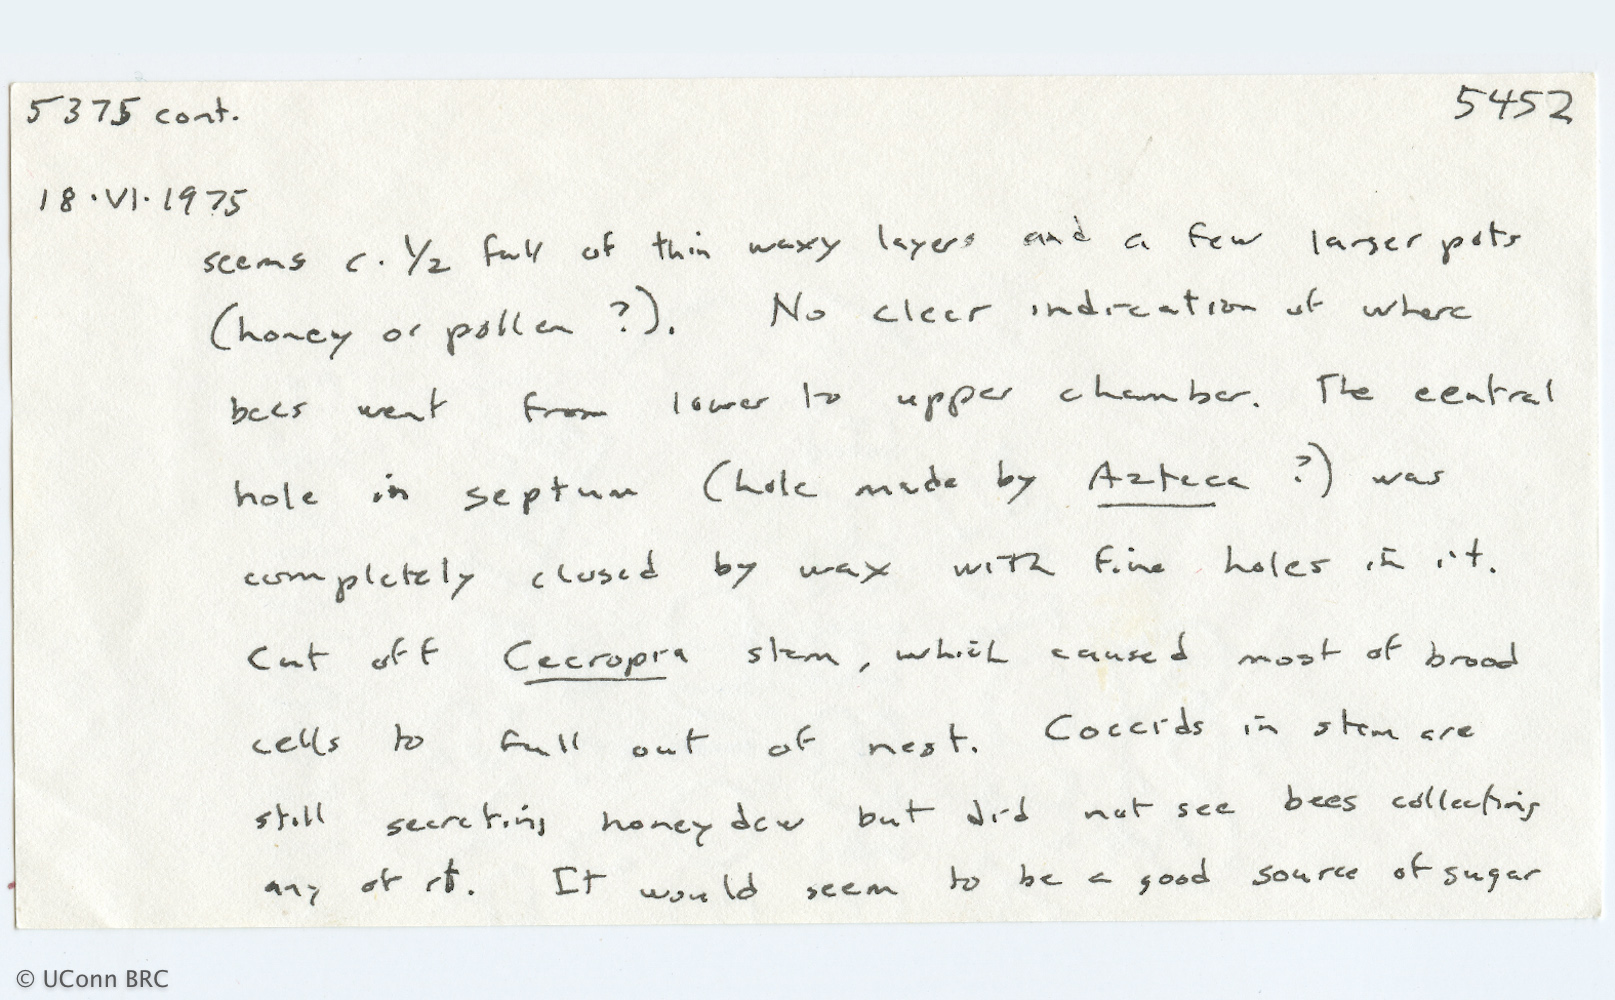 5375 cont.
5452
18·VI·1975
seems c. 1/2 full of thin waxy layers and a few larger pots
(honey or pollen ?). No clear indication of where
bees went from lower to upper chamber. The central
hole in septum (hole made by Azteca ?) was
completely closed by wax with fine holes in it.
Cut off Cecropia stem, which caused most of brood
cells to fall out of nest. Coccids in stem are
still secreting honeydew but did not see bees collecting
any of it. It would seem to be a good source of sugar
© UConn BRC